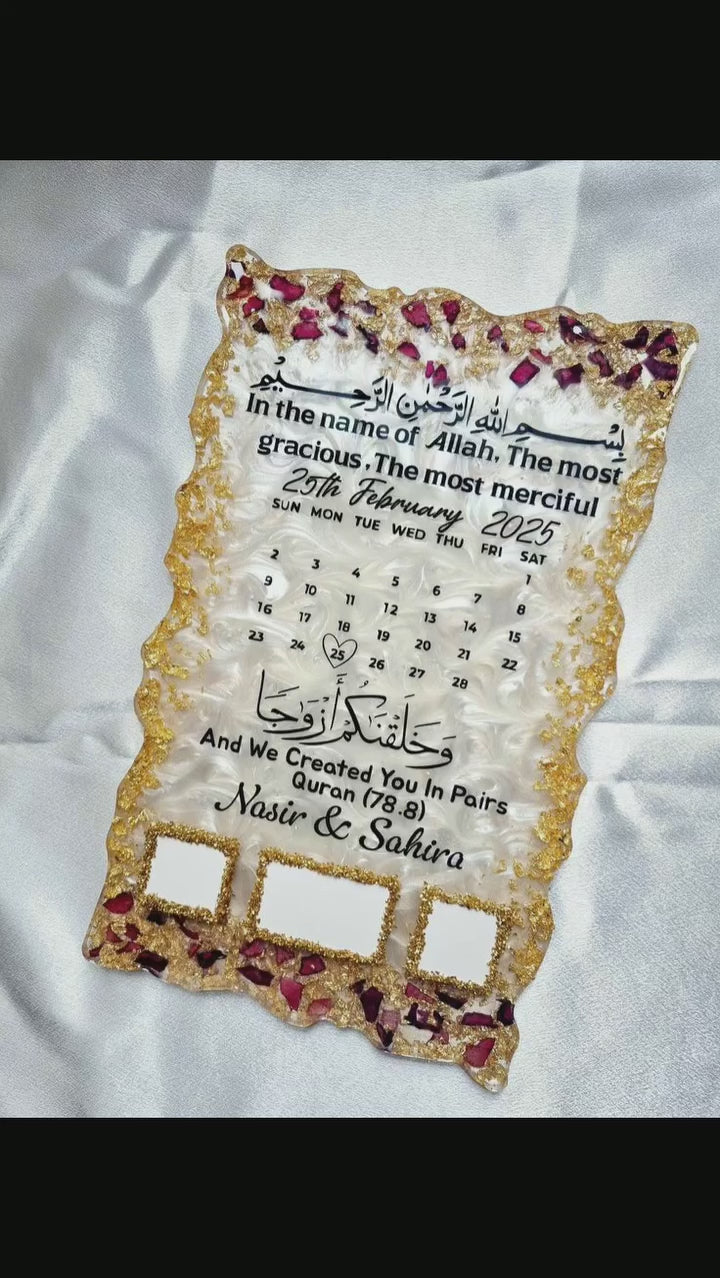 بِسْمِ اللهِ الرَّحْمٰنِ الرَّحِيْمِ
In the name of Allah, The most
gracious, The most merciful
25th February 2025
SUN MON TUE WED THU FRI SAT
1
2 3 4 5 6 7 8
9 10 11 12 13 14 15
16 17 18 19 20 21 22
23 24 25 26 27 28
وَخَلَقْنَاكُمْ أَزْوَاجًا
And We Created You In Pairs
Quran (78.8)
Nasir & Sahira